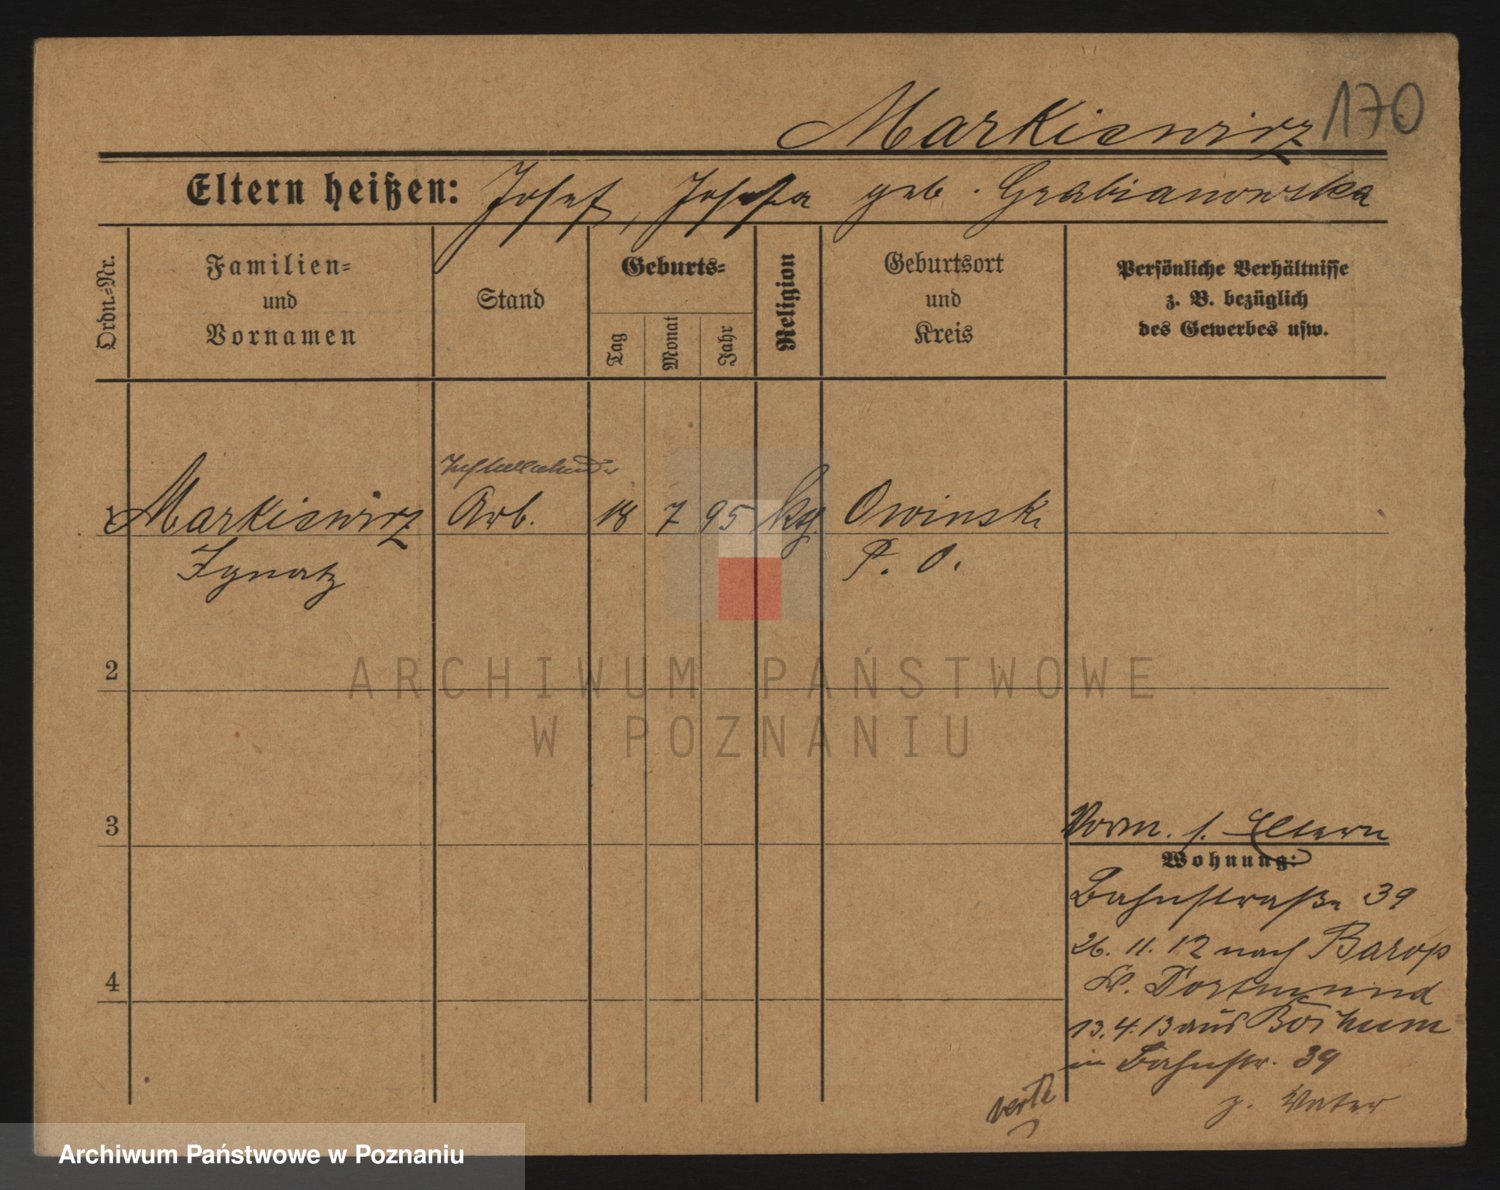 Markiewicz 170
Eltern heißen: Josef, Josefa geb. Grabianowska
Ordn.-Nr.
Familien-
und
Vornamen
Stand
Geburts-
Tag
Monat
Jahr
Religion
Geburtsort
und
Kreis
Persönliche Verhältnisse
z. B. bezüglich
des Gewerbes usw.
1 Markiewicz Arb. 18 7 95 kg. Owinsk
Ignatz P. O.
2
ARCHIWUM PAŃSTWOWE
W POZNANIU
3
Vorm. s. Eltern
Wohnung:
Bahnstraße 39
26. 11. 12 nach Barop
4
Kr. Dortmund
13. 4. 13 aus Bochum
in Bahnstr. 39
z. Vater
verte
Archiwum Państwowe w Poznaniu